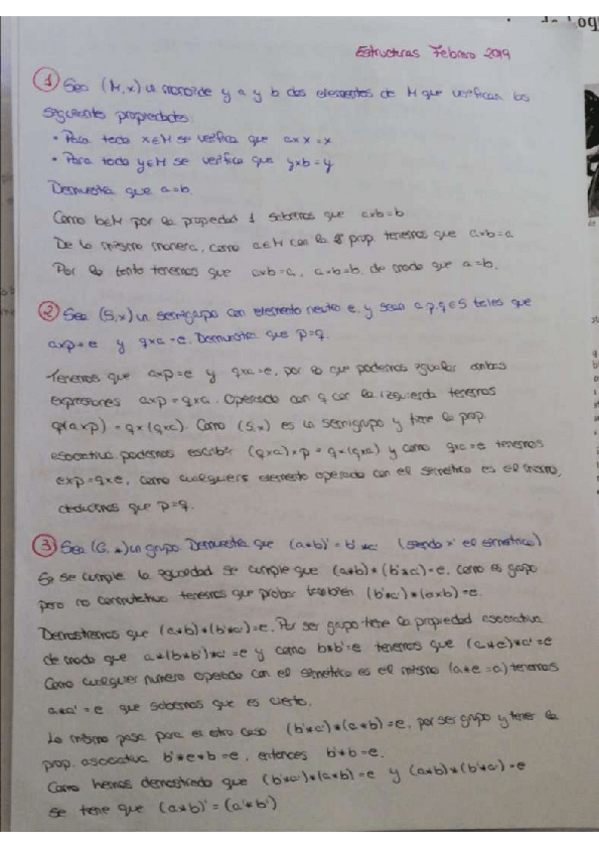 Estructuras Febrero 2019
① Sea (M,x) un monoide y a y b dos elementos de M que verifican las
siguientes propiedades:
• Para todo x∈M se verifica que axx=x
• Para todo y∈M se verifica que yxb=y
Demuestra que a=b.
Como b∈M por la propiedad 1 sabemos que axb=b
De la misma manera, como a∈M con la prop. tenemos que axb=a
Por lo tanto tenemos que axb=a, axb=b de modo que a=b.
② Sea (S,x) un semigrupo con elemento neutro e, y sean a,p,q∈S tales que
axp=e y qxa=e. Demuestra que p=q.
Tenemos que axp=e y qxa=e, por lo que podemos igualar ambas
expresiones axp=qxa. Operando con q por la izquierda tenemos
q(axp)=qx(qxa). Como (S,x) es un semigrupo y tiene la prop.
asociativa podemos escribir (qxa)xp=qx(qxa) y como qxa=e tenemos
exp=qxe, como cualquiera elemento operado con el simétrico es el mismo,
deducimos que p=q.
③ Sea (G,*) un grupo. Demuestra que (a*b)'=b'*a' (siendo x' el simétrico)
Si se cumple la igualdad se cumple que (a*b)*(b'*a')=e, como es grupo
pero no conmutativo tenemos que probar también (b'*a')*(a*b)=e.
Demostremos que (a*b)*(b'*a')=e. Por ser grupo tiene la propiedad asociativa
de modo que a*(b*b')*a'=e y como b*b'=e tenemos que (a*e)*a'=e
Como cualquier numero operado con el simetrico es el mismo (a*e=a) tenemos
a*a'=e que sabemos que es cierto.
Lo mismo pasa para el otro caso (b'*a')*(a*b)=e, por ser grupo y tener la
prop. asociativa b'*e*b=e, entonces b'*b=e.
Como hemos demostrado que (b'*a')*(a*b)=e y (a*b)*(b'*a')=e
se tiene que (a*b)'=(a'*b')